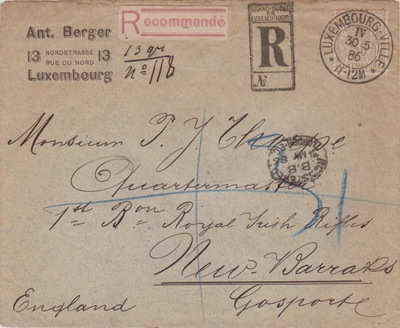 Ant. Berger
13 NORDSTRASSE 13
RUE DU NORD
Luxembourg
Recommandé
13 gr
No 118
LUXEMBOURG
R
No
LUXEMBOURG-VILLE
IV
30 5
86
11-12M
Monsieur T. J. Thorpe
Quartermaster
1st Bon Royal Irish Rifles
New-Barraks
Gosporte
England